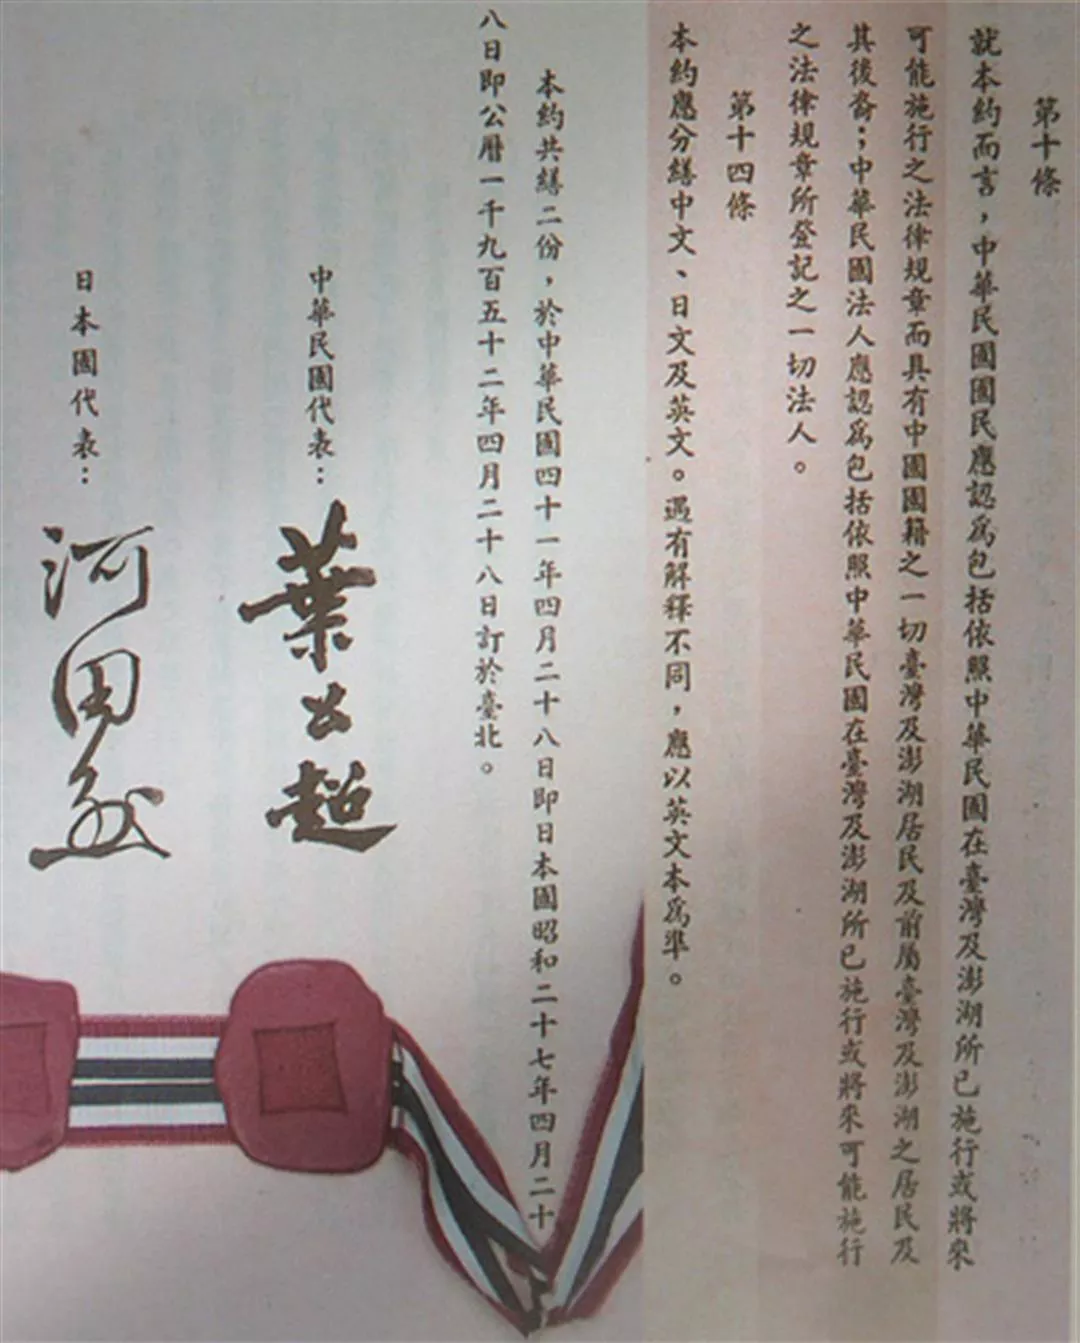 第十條
就本約而言，中華民國國民應認為包括依照中華民國在臺灣及澎湖所已施行或將來
可能施行之法律規章而具有中國國籍之一切臺灣及澎湖居民及前屬臺灣及澎湖之居民及
其後裔；中華民國法人應認為包括依照中華民國在臺灣及澎湖所已施行或將來可能施行
之法律規章所登記之一切法人。
第十四條
本約應分繕中文、日文及英文。遇有解釋不同，應以英文本為準。
本約共繕二份，於中華民國四十一年四月二十八日即日本國昭和二十七年四月二十
八日即公曆一千九百五十二年四月二十八日訂於臺北。
中華民國代表：葉公超
日本國代表：河田烈